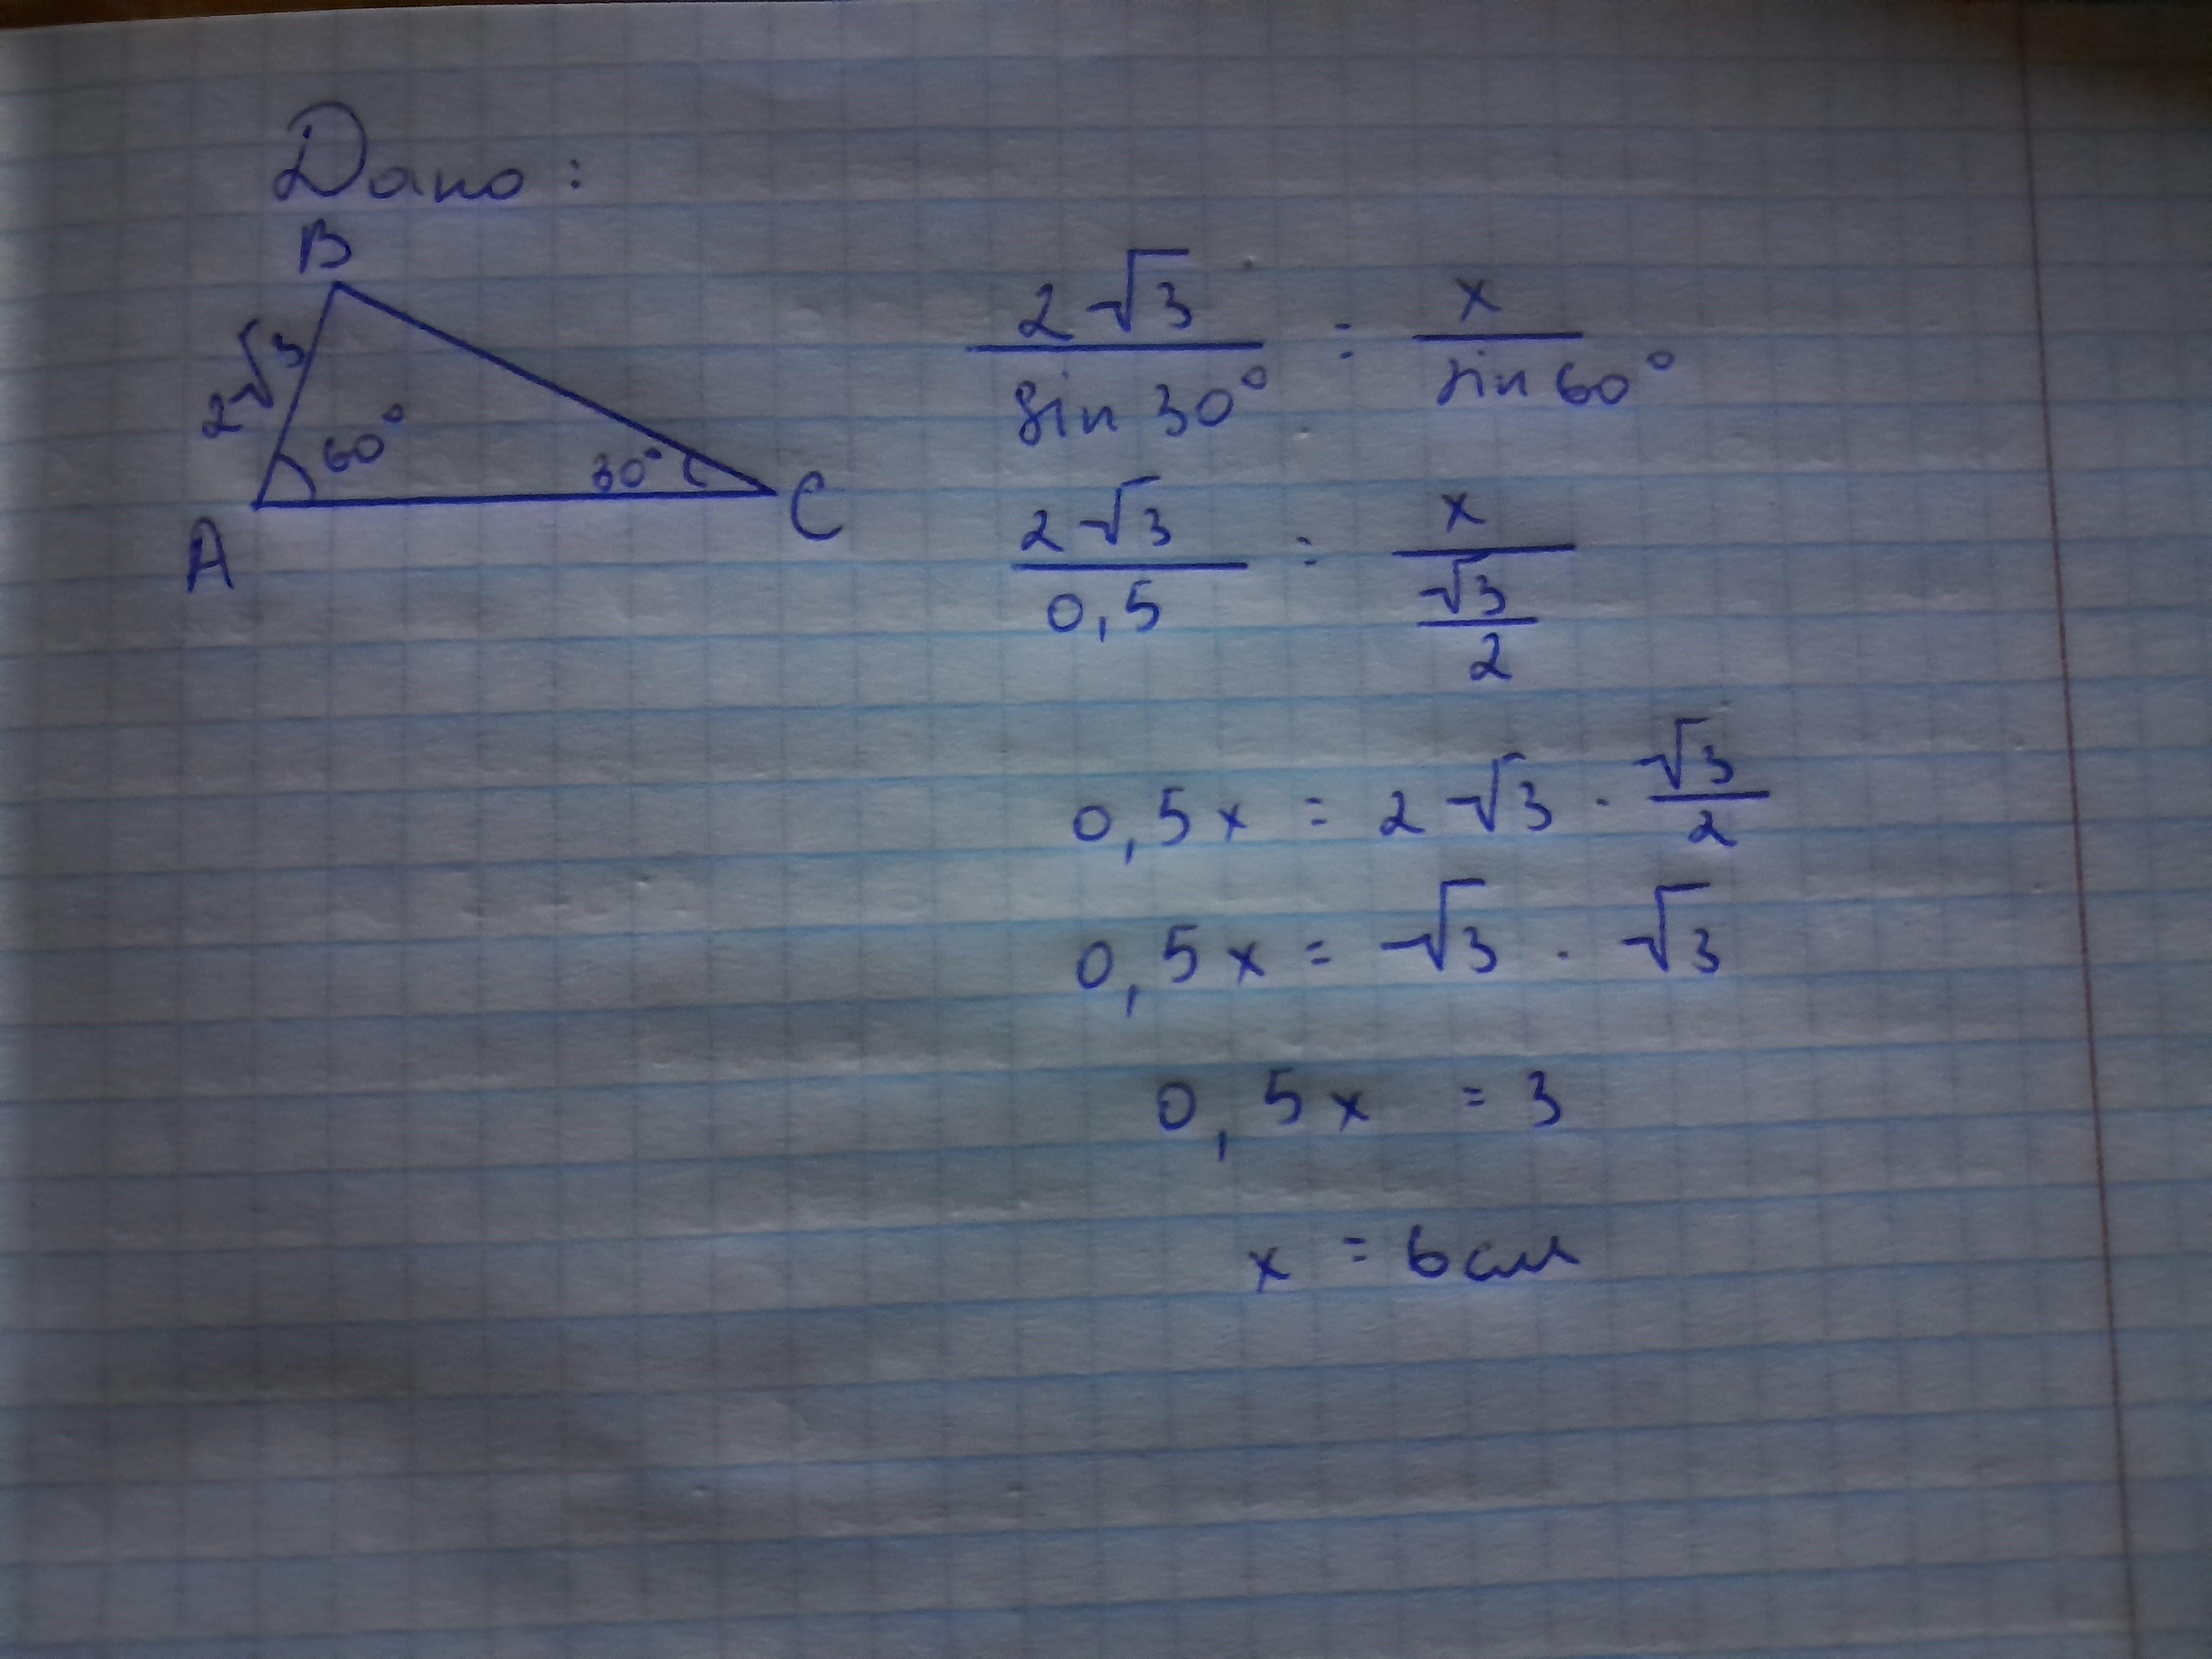 Дано:
B
2√3
60°
30°
A
C
2√3 / sin 30° = x / sin 60°
2√3 / 0,5 = x / (√3 / 2)
0,5x = 2√3 · √3 / 2
0,5x = √3 · √3
0,5x = 3
x = 6см